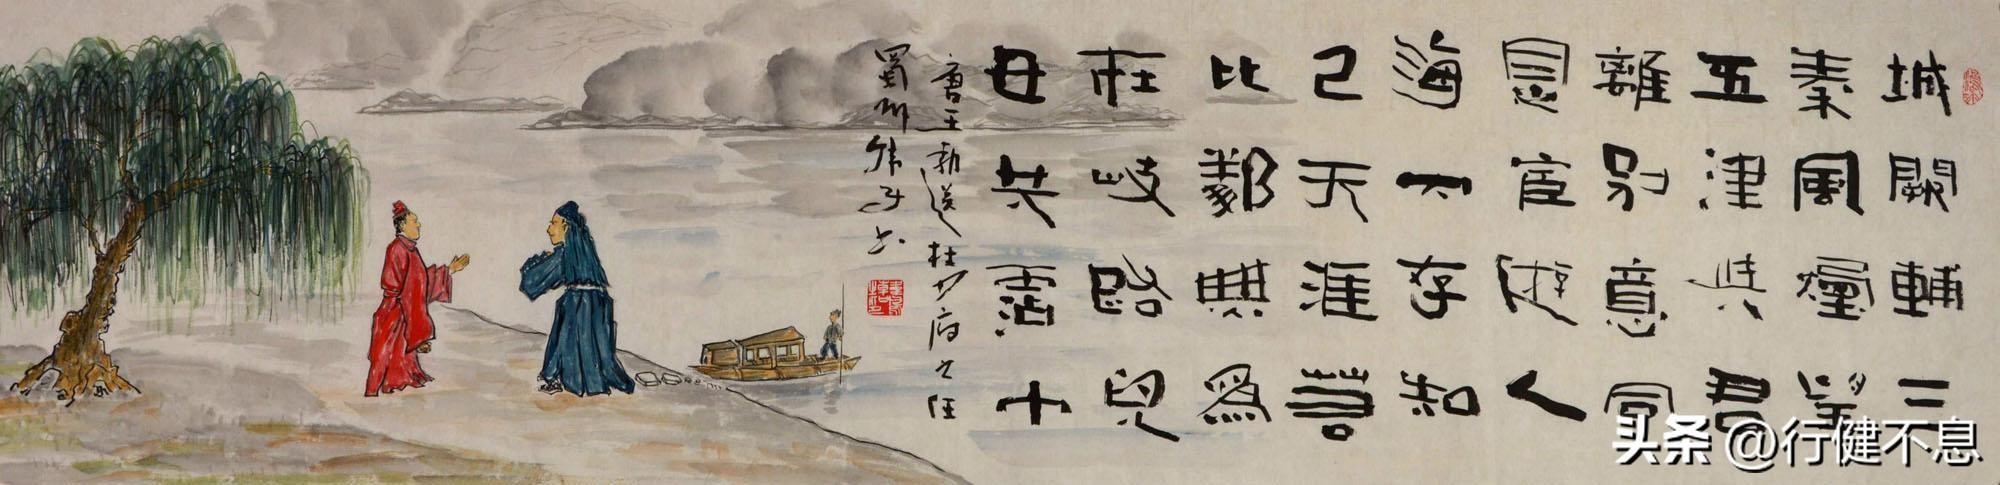 城闕輔三
秦風煙望
五津與君
離別意同
是宦遊人
海內存知
己天涯若
比鄰無為
在岐路兒
女共霑巾
唐王勃送杜少府之任
蜀州
头条 @行健不息